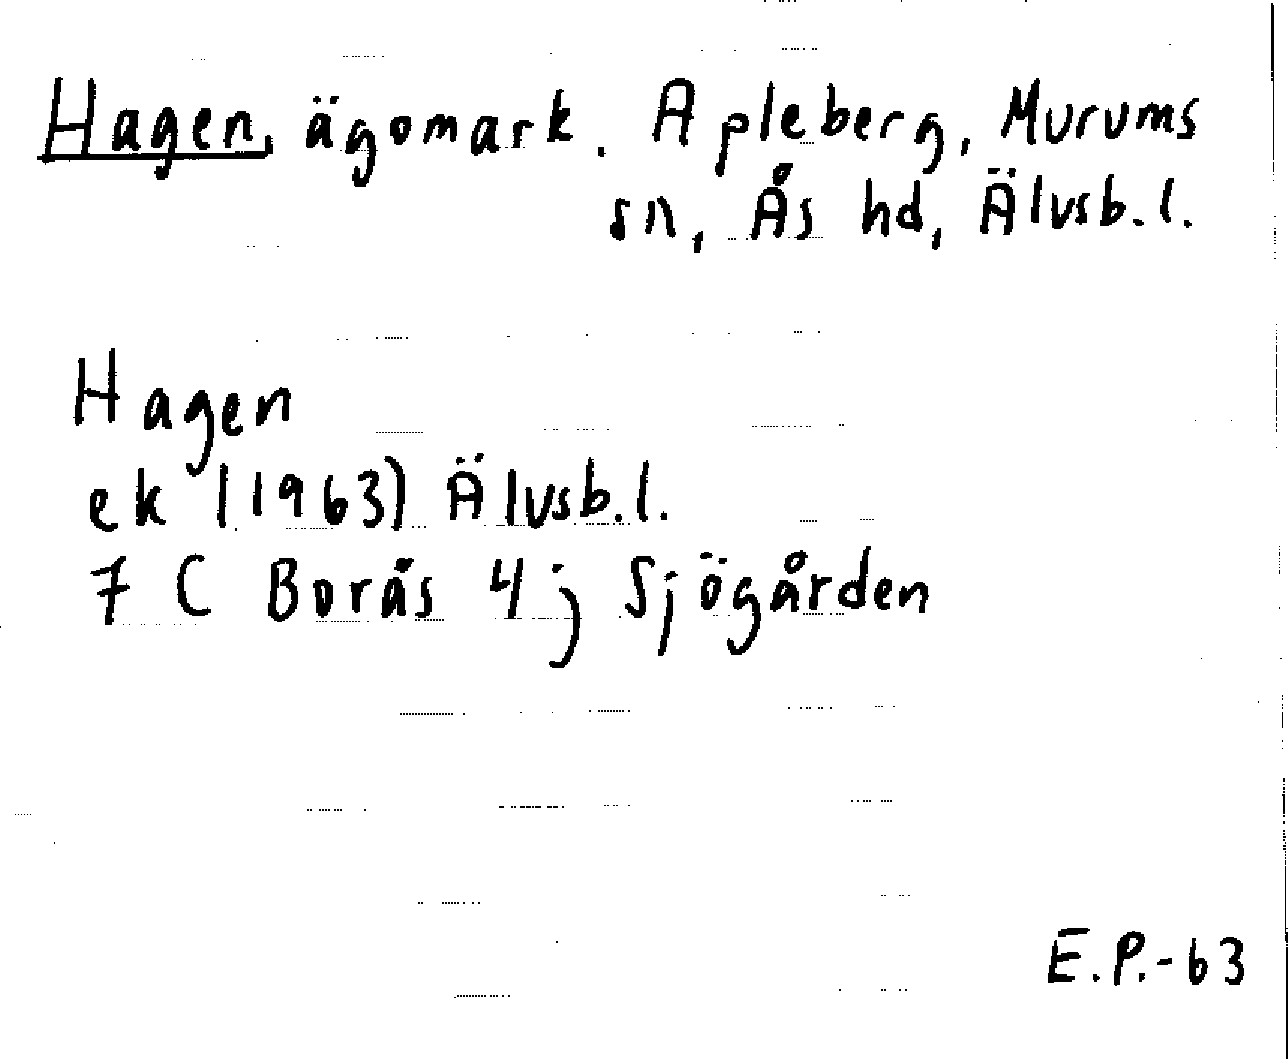 Hagen, ägomark. Apleberg, Murums
sn, Ås hd, Älvsb.l.
Hagen
ek (1963) Älvsb.l.
7 C Borås 4 j Sjögården
E.P.-63